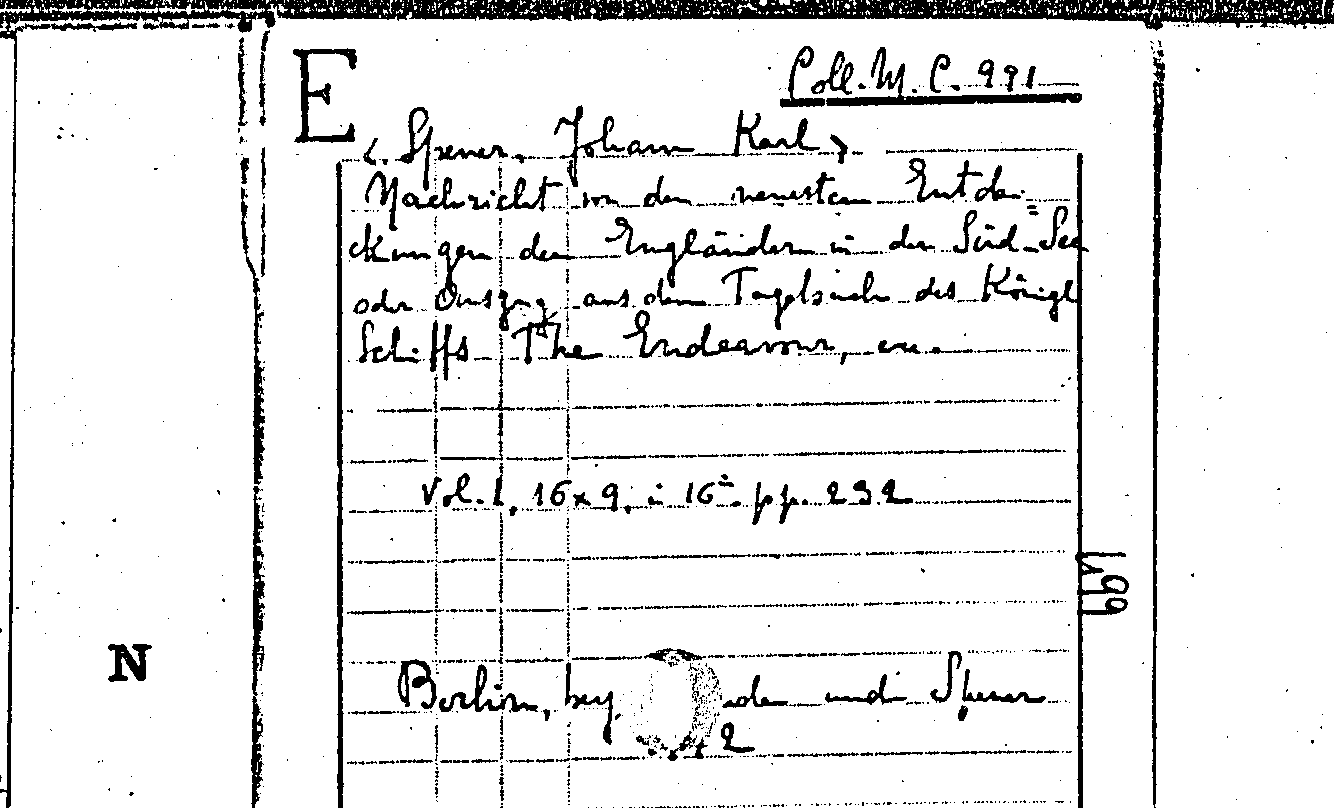 E
Coll. M. C. 991
<. Spener, Johann Karl >
Nachricht von den neuesten Entde=
ckungen der Engländer in der Süd-See
oder Auszug aus dem Tagebuch des Königl
Schiffs The Endeavour, ecc.
Vol. 1, 16x9, in 16º pp. 232
N
Berlin, bey und Spener
2